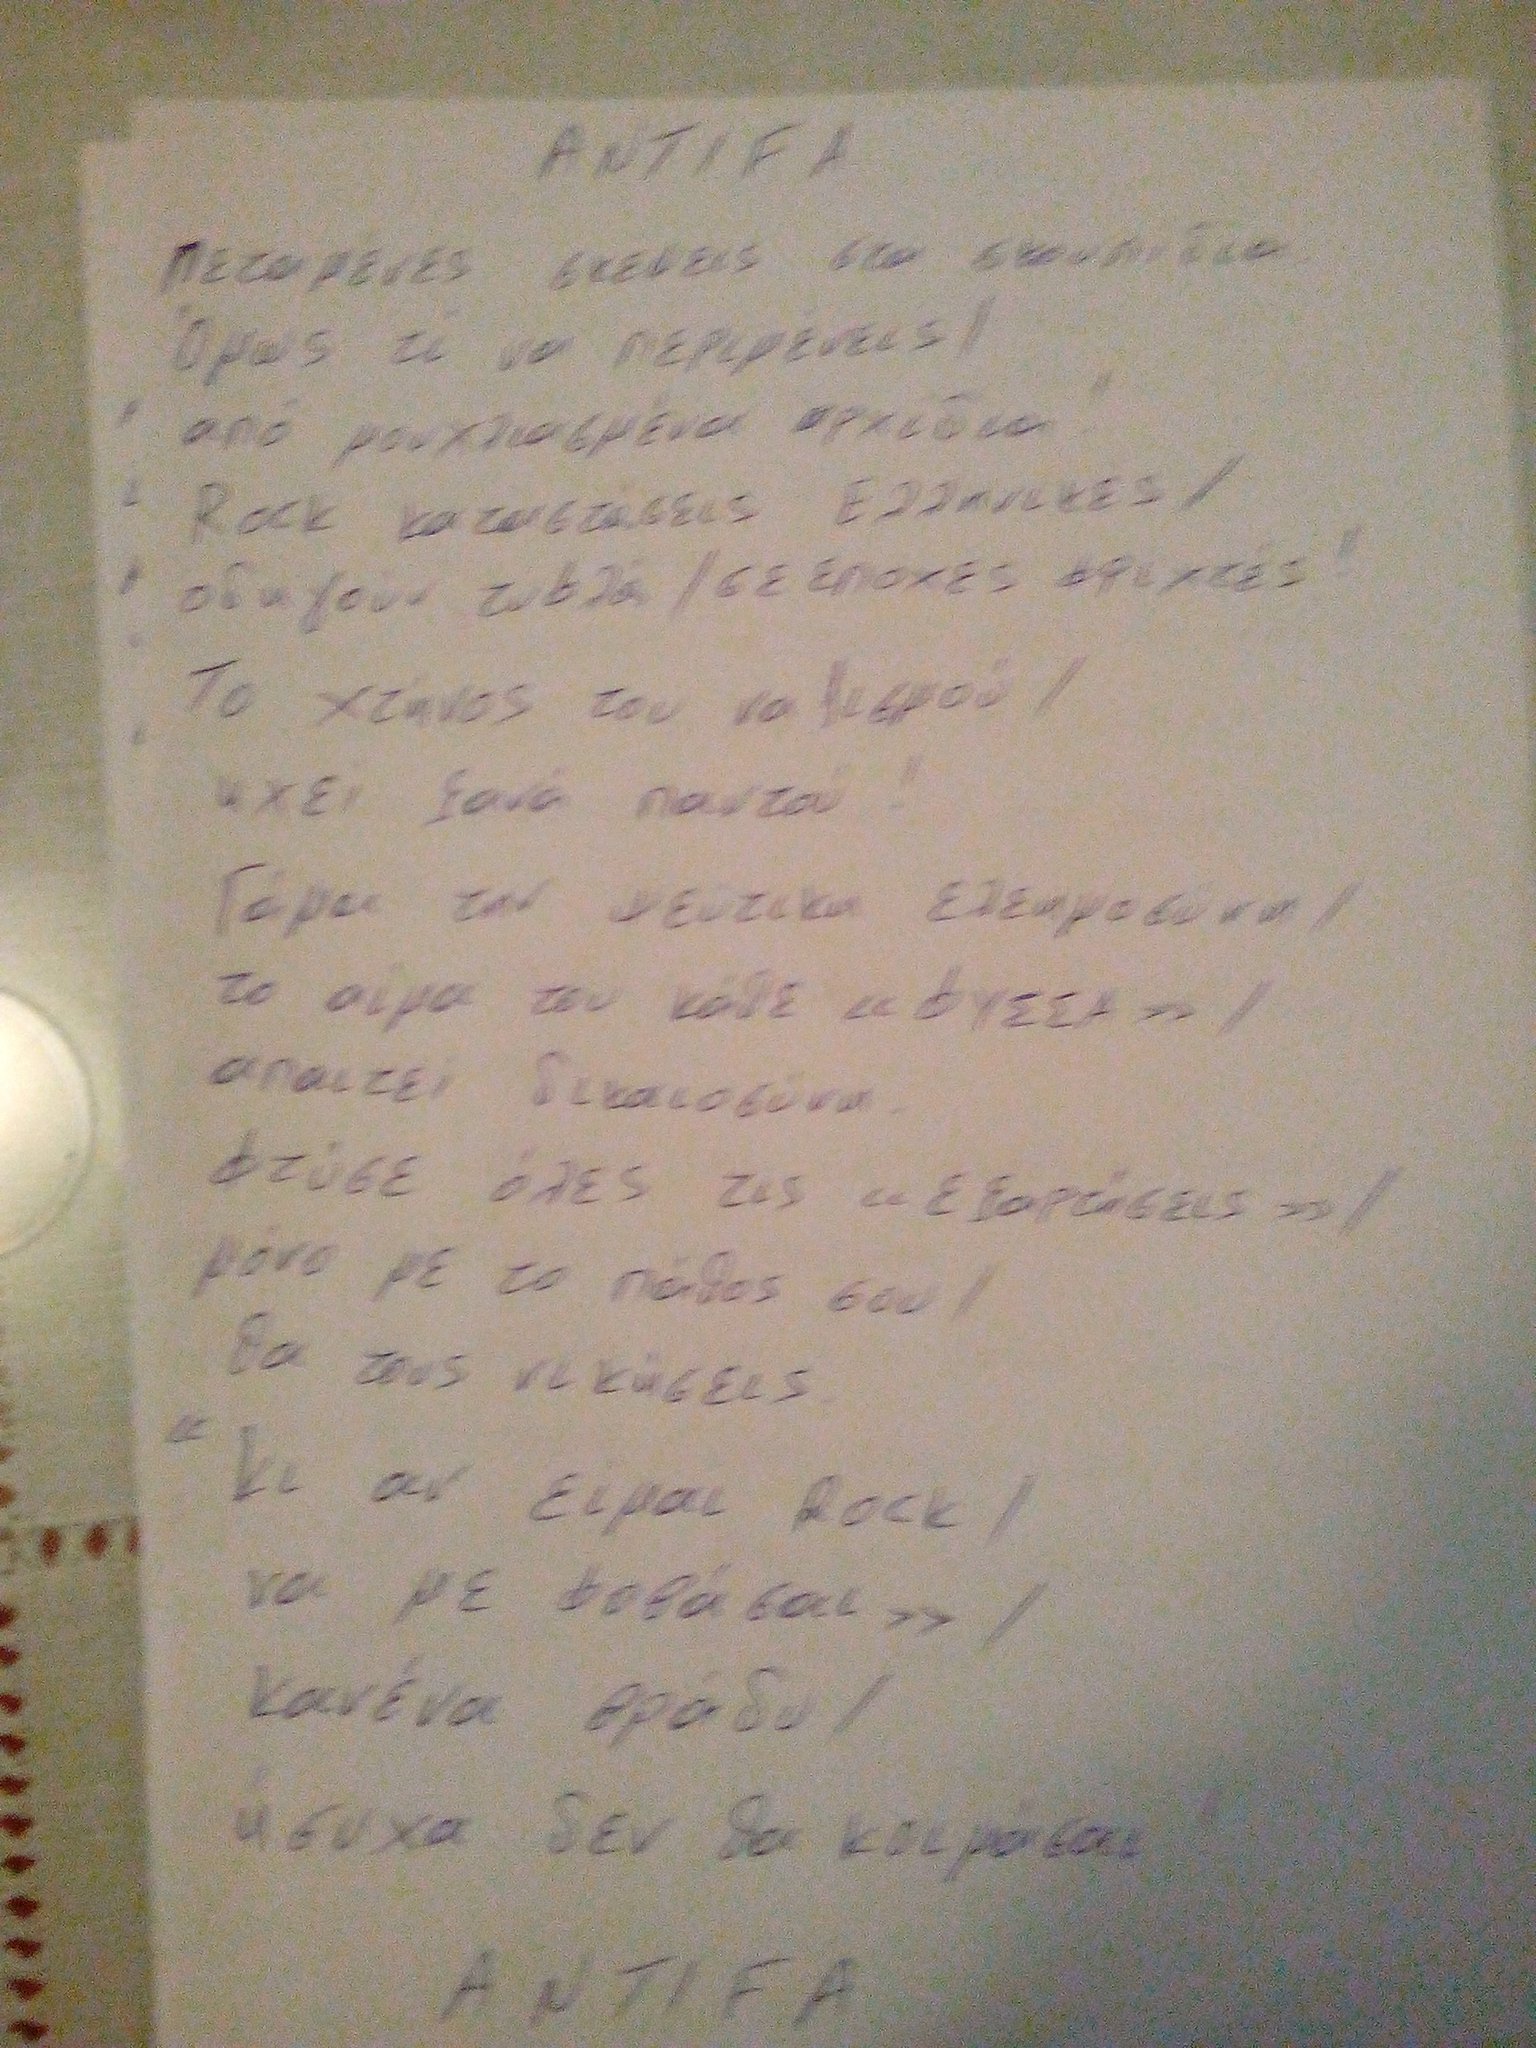 ANTIFA
Πεταμένες σκέψεις στα σκουπίδια.
Όμως τί να περιμένεις/
από μουχλιασμένα αρχίδια!
Rock καταστάσεις Ελληνικές/
οδηγούν τυφλά/σε εποχές φριχτές!
Το χτήνος του ναζισμού/
ηχεί ξανά παντού!
Γάμα την ψεύτικη ελεημοσύνη/
το αίμα του κάθε «ΦΥΣΣΑ»/
απαιτεί δικαιοσύνη.
Φτύσε όλες τις «εξαρτήσεις»/
μόνο με το πάθος σου/
θα τους νικήσεις.
«Κι αν είμαι Rock/
να με φοβάσαι»/
κανένα βράδυ/
ήσυχα δεν θα κοιμάσαι!
ANTIFA